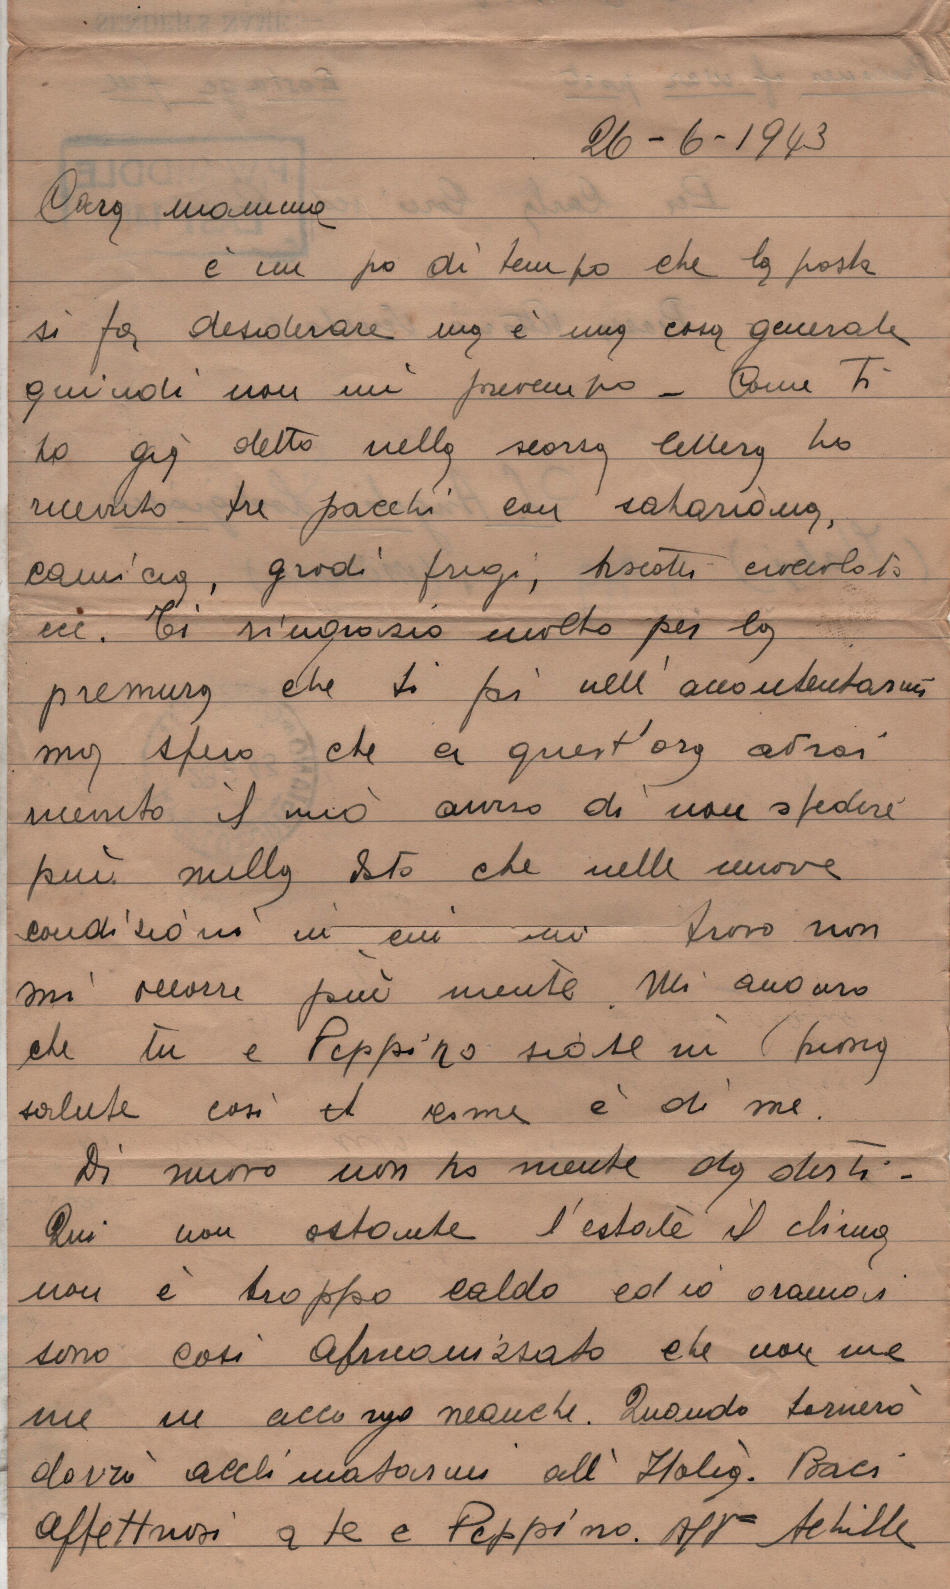 26-6-1943
Cara mamma
è un po di tempo che la posta
si fa desiderare ma è una cosa generale
quindi non mi preoccupo - Come ti
ho già detto nella scorsa lettera ho
ricevuto tre pacchi con sahariana,
camicia, gradi fregi, biscotti cioccolato
ecc. Ti ringrazio molto per la
premura che ti fai nell'accontentarmi
ma spero che a quest'ora avrai
ricevuto il mio avviso di non spedire
più nulla dato che nelle nuove
condizioni in cui mi trovo non
mi occorre più niente. Mi auguro
che tu e Peppino siate in buona
salute così come è di me.
Di nuovo non ho niente da dirti -
Qui non ostante l'estate il clima
non è troppo caldo ed io oramai
sono così africanizzato che non me
ne accorgo neanche. Quando tornerò
dovrò acclimatarmi all'Italia. Baci
affettuosi a te e Peppino. Aff Achille
P.W. MIDDLE EAST